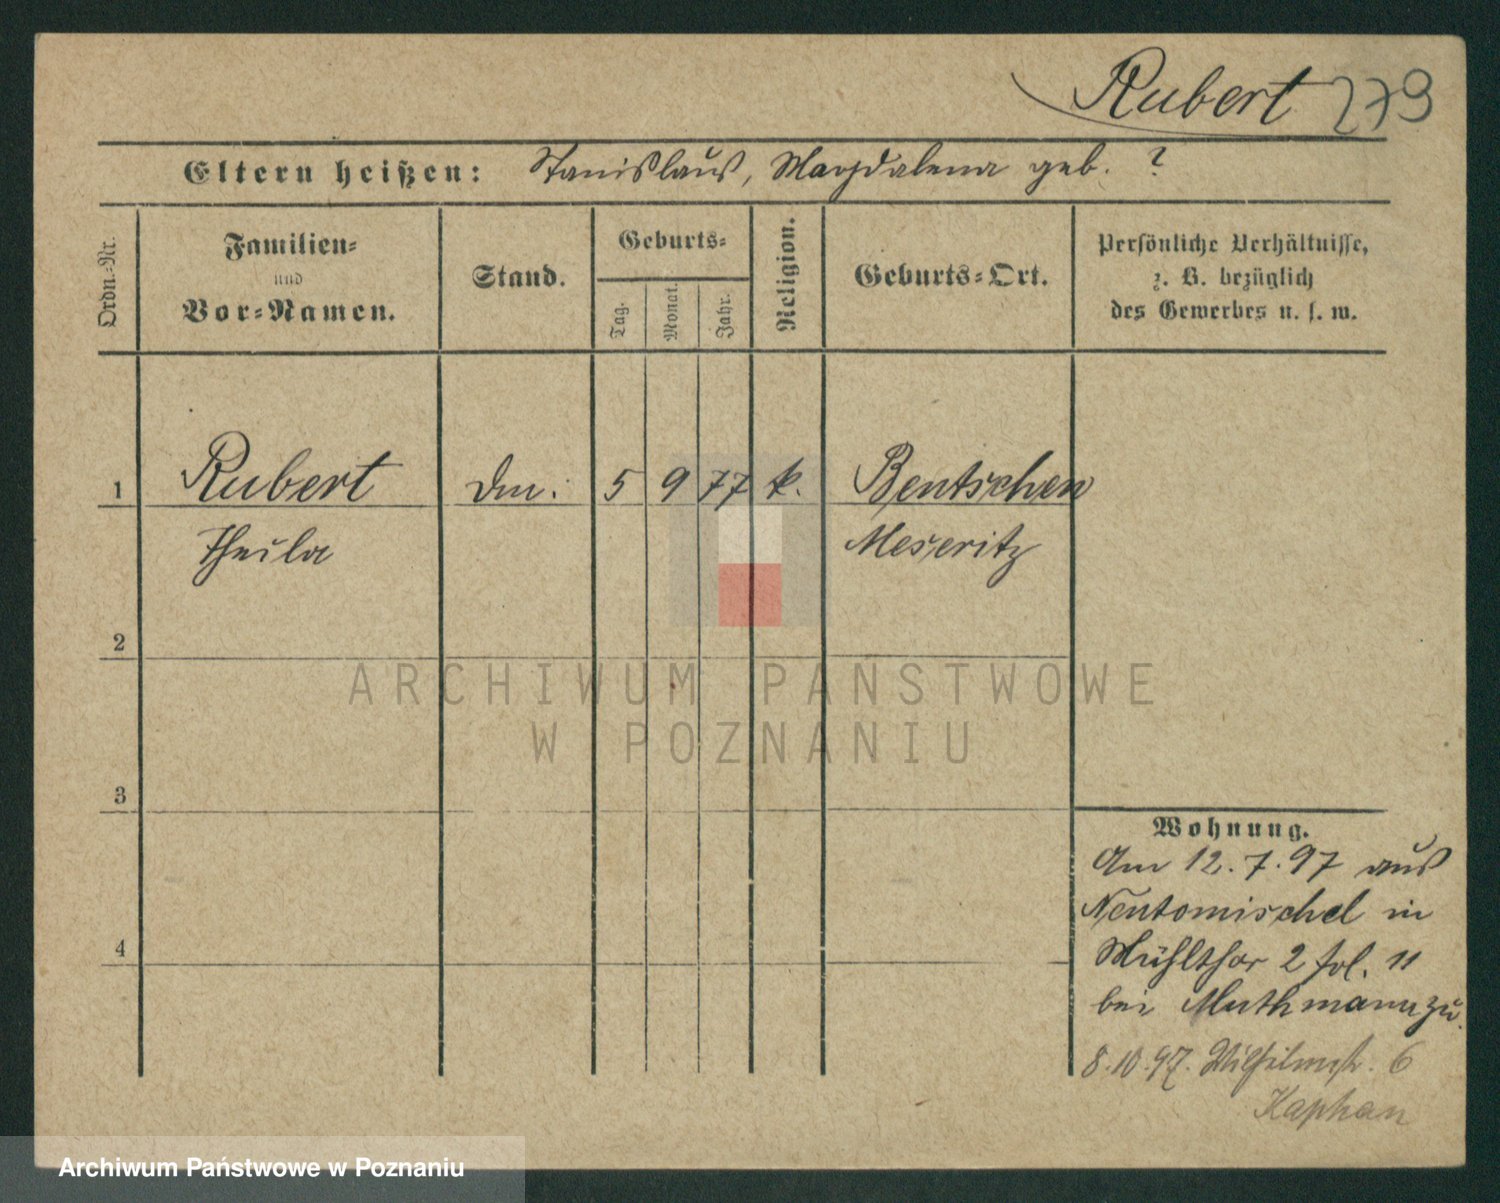 Rubert 279
Eltern heißen: Stanislaus, Magdalena geb. ?
Ordn.=Nr.
Familien=
und
Vor=Namen.
Stand.
Geburts=
Tag.
Monat.
Jahr.
Religion.
Geburts=Ort.
Persönliche Verhältnisse,
z. B. bezüglich
des Gewerbes u. s. w.
1 Rubert 5 9 77 k. Bentschen
Thekla Meseritz
2
3
4
Wohnung.
Am 12.7.97 aus
Neutomischel in
Mühlthor 2 fol. 11
bei Muthmann zu.
8.10.97. Wilhelmstr. 6
Kaphan
ARCHIWUM PAŃSTWOWE
W POZNANIU
Archiwum Państwowe w Poznaniu